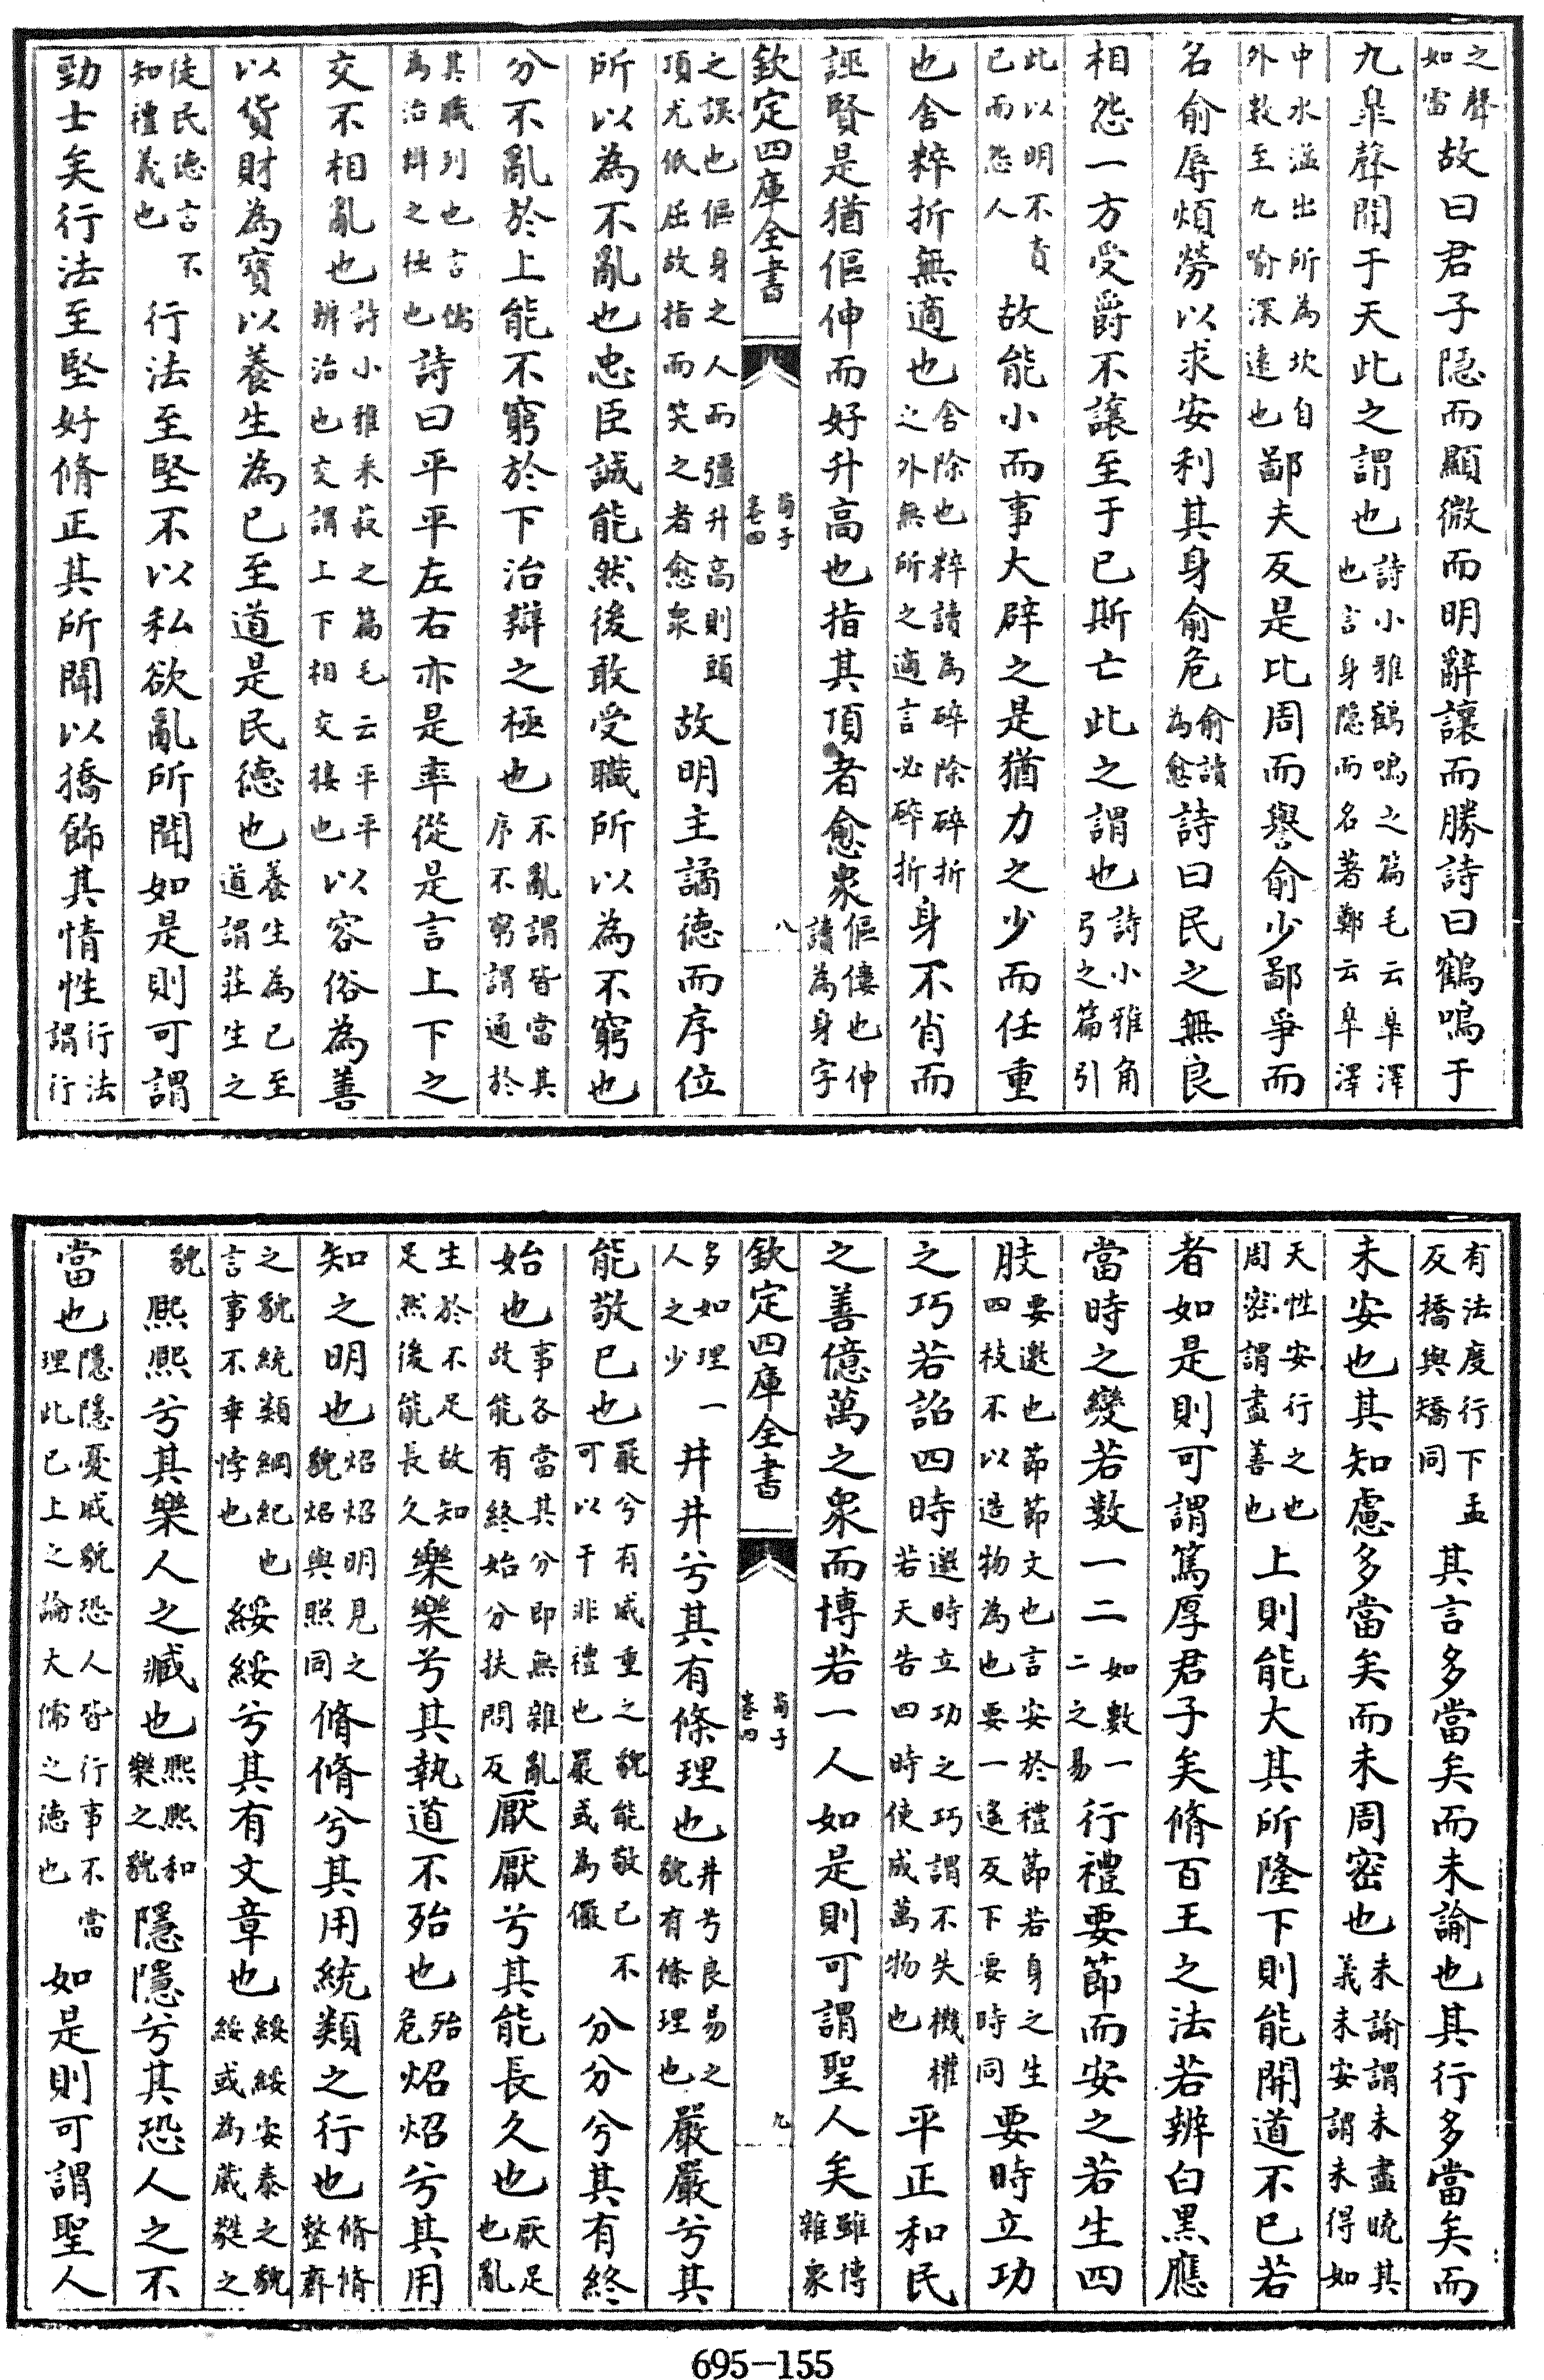 之聲如雷故曰君子隐而顯微而明辭讓而勝詩曰鶴鳴于
九臯聲聞于天此之謂也詩小雅鶴鳴之篇毛云臯澤也言身隐而名著鄭云臯澤
中水溢出所為坎自外數至九喻深逺也鄙夫反是比周而譽俞少鄙爭而
名俞辱煩勞以求安利其身俞危俞讀為愈詩曰民之無良
相怨一方受爵不讓至于已斯亡此之謂也詩小雅角弓之篇引
此以明不責已而怨人故能小而事大辟之是猶力之少而任重
也舍粹折無適也舍除也粹讀為碎除碎折之外無所之適言必碎折身不肖而
誣賢是猶傴伸而好升高也指其頂者愈衆傴僂也伸讀為身字
欽定四庫全書 荀子 卷四 八
之誤也傴身之人而彊升高則頭頂尤低屈故指而笑之者愈衆故明主譎德而序位
所以為不亂也忠臣誠能然後敢受職所以為不窮也
分不亂於上能不窮於下治辯之極也不亂謂皆當其序不窮謂通於
其職列也言儒為治辯之極也詩曰平平左右亦是率從是言上下之
交不相亂也詩小雅采菽之篇毛云平平辨治也交謂上下相交接也以容俗為善
以貨財為寳以養生為已至道是民德也養生為已至道謂莊生之
徒民德言不知禮義也行法至堅不以私欲亂所聞如是則可謂
勁士矣行法至堅好脩正其所聞以撟飾其情性行法謂行
有法度行下孟反撟與矯同其言多當矣而未諭也其行多當矣而
未安也其知慮多當矣而未周密也未諭謂未盡曉其義未安謂未得如
天性安行之也周密謂盡善也上則能大其所隆下則能開道不已若
者如是則可謂篤厚君子矣脩百王之法若辨白黒應
當時之變若数一二如數一二之易行禮要節而安之若生四
肢要邀也節節文也言安於禮節若身之生四枝不以造物為也要一遥反下要時同要時立功
之巧若詔四時邀時立功之巧謂不失機權若天告四時使成萬物也平正和民
之善億萬之衆而博若一人如是則可謂聖人矣雖博雜衆
欽定四庫全書 荀子 卷四 九
多如理一人之少井井兮其有條理也井兮良易之貌有條理也嚴嚴兮其
能敬已也嚴兮有威重之貌能敬已不可以干非禮也嚴或為儼分分兮其有終
始也事各當其分即無雜亂故能有終始分扶問反厭厭兮其能長久也厭足也亂
生於不足故知足然後能長久樂樂兮其執道不殆也殆危炤炤兮其用
知之明也炤炤明見之貌炤與照同脩脩兮其用統類之行也脩脩整齊
之貌統類綱紀也言事不乖悖也綏綏兮其有文章也綏綏安泰之貌綏或為葳蕤之
貌熙熙兮其樂人之臧也熙熙和樂之貌隱隱兮其恐人之不
當也隱隱憂戚貌恐人皆行事不當理此已上之論大儒之徳也如是則可謂聖人
695-155